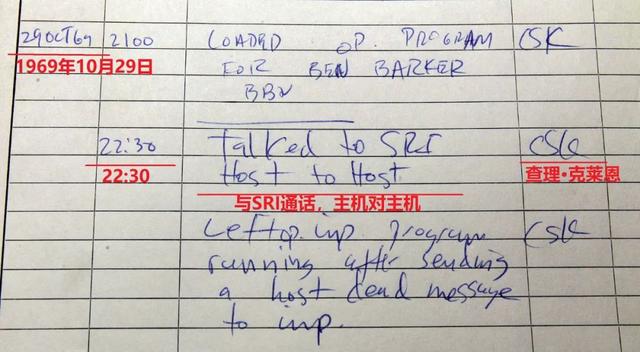 29OCT69 2100 LOADED OP. PROGRAM CSK
1969年10月29日
FOR BEN BARKER
BBN
22:30 Talked to SRI CSK
22:30
Host to Host
查理·克莱恩
与SRI通话，主机对主机
Left op. imp. program CSK
running after sending
a host dead message
to imp.